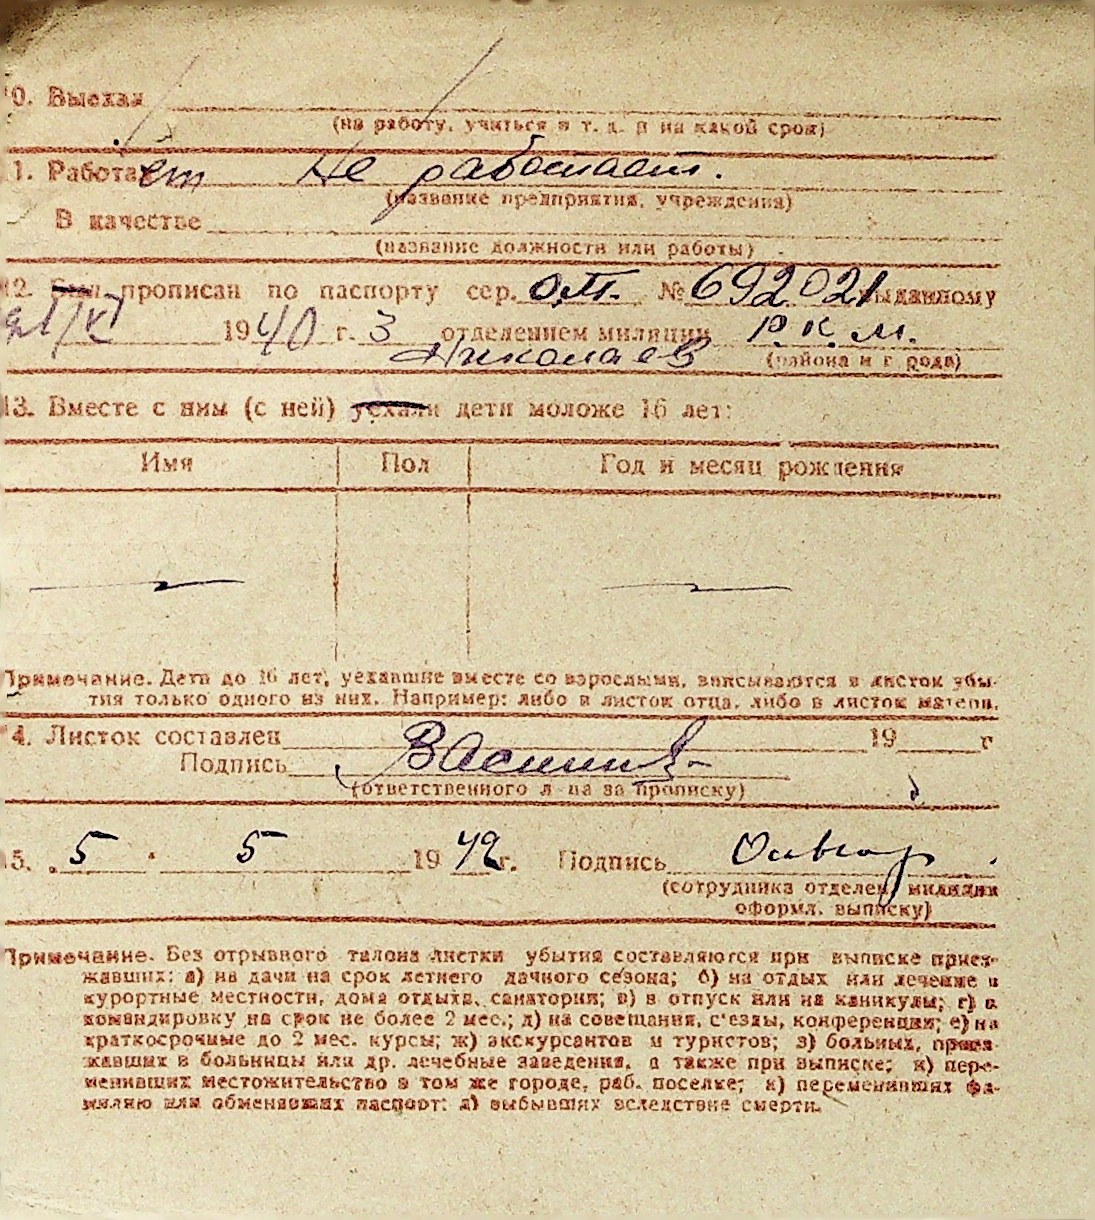 10. Выехал
(на работу, учиться и т. д. и на какой срок)
11. Работает Не работает.
(название предприятия, учреждения)
В качестве
(название должности или работы)
12. Был прописан по паспорту сер. О.П. № 692021 выданному
21/XI 1940 г. 3 отделением милиции Р.К.М.
Николаев (района и города)
13. Вместе с ним (с ней) уехали дети моложе 16 лет:
Имя Пол Год и месяц рождения
Примечание. Дети до 16 лет, уехавшие вместе со взрослыми, вписываются в листок убы-
тия только одного из них. Например: либо в листок отца, либо в листок матери.
14. Листок составлен 19 г
Подпись
(ответственного лица за прописку)
15. „5 " 5 1942 г. Подпись
(сотрудника отделен. милиции
оформл. выписку)
Примечание. Без отрывного талона листки убытия составляются при выписке приез-
жавших: а) на дачи на срок летнего дачного сезона; б) на отдых или лечение в
курортные местности, дома отдыха, санатории; в) в отпуск или на каникулы; г) в
командировку на срок не более 2 мес.; д) на совещания, с'езды, конференции; е) на
краткосрочные до 2 мес. курсы; ж) экскурсантов и туристов; з) больных, приез-
жавших в больницы или др. лечебные заведения, а также при выписке; и) пере-
менивших местожительство в том же городе, раб. поселке; к) переменивших фа-
милию или обменявших паспорт; л) выбывших вследствие смерти.